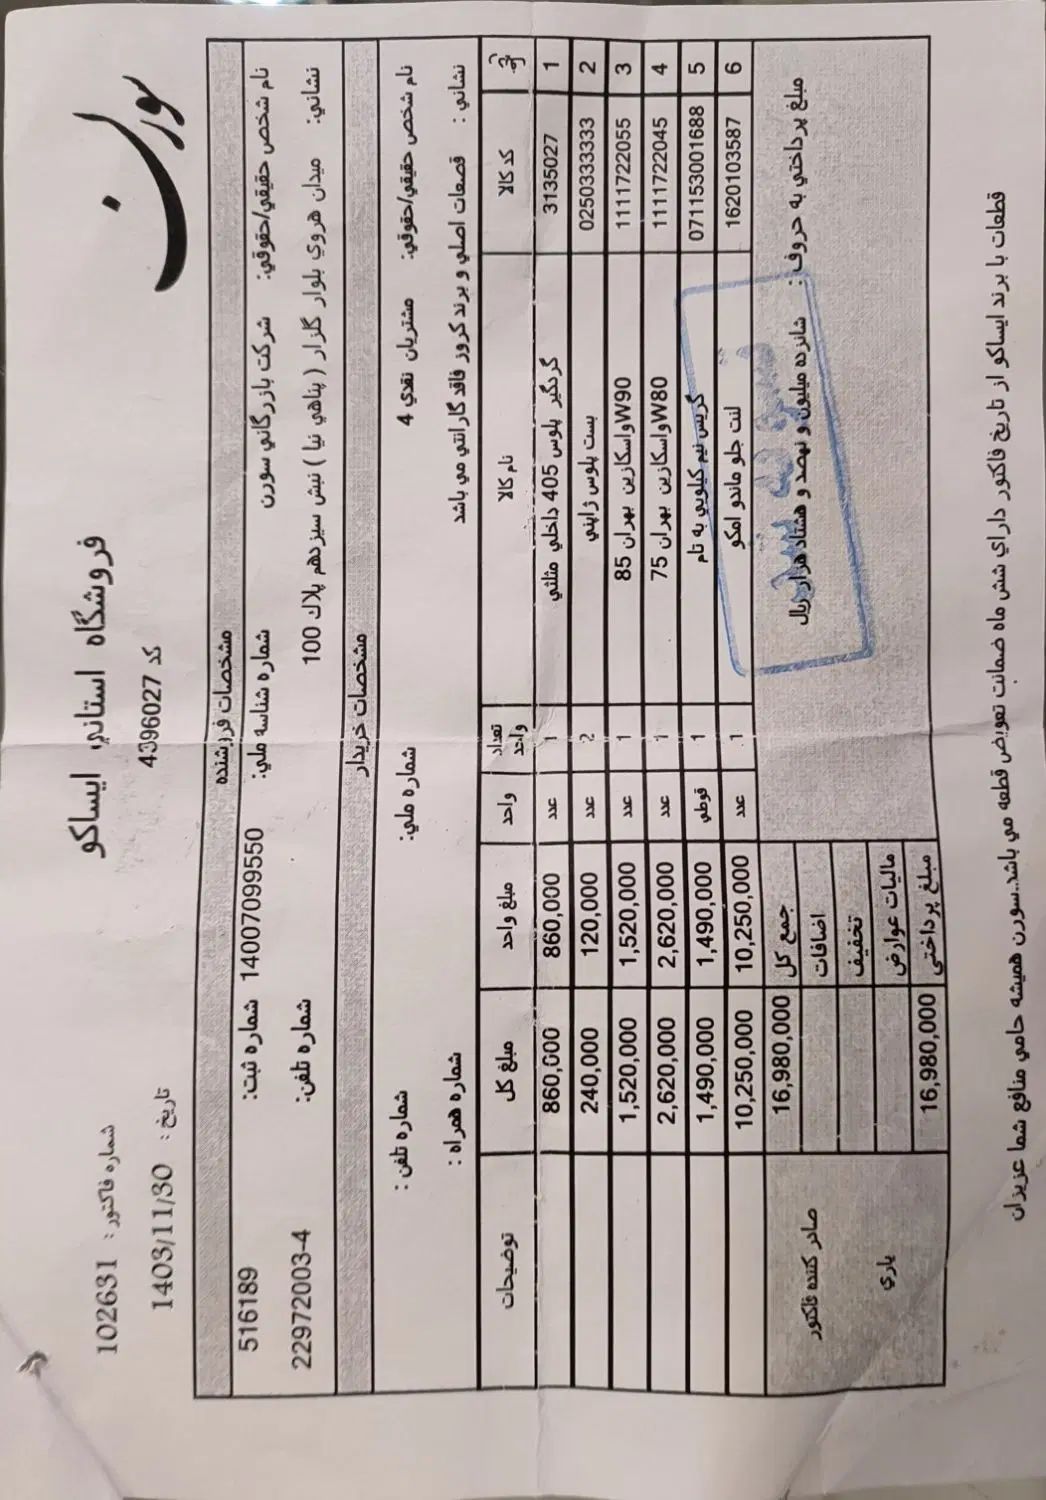 سورن
فروشگاه استاني ايساكو
كد 4396027
شماره فاكتور : 102631
تاريخ : 1403/11/30
مشخصات فروشنده
نام شخص حقيقي/حقوقي: شركت بازرگاني سورن شماره شناسه ملي: 14007099550 شماره ثبت: 516189
نشاني: ميدان هروي بلوار گلزار ( پناهي نيا ) نبش سيزدهم پلاك 100 شماره تلفن: 22972003-4
مشخصات خريدار
نام شخص حقيقي/حقوقي: مشتريان نقدي 4 شماره ملي: شماره تلفن :
نشاني : قصعات اصلي و برند كروز فاقد گارانتي مي باشد شماره همراه :
كد كالا نام كالا تعداد واحد واحد مبلغ واحد مبلغ كل توضيحات
1 3135027 گردگير پلوس 405 داخلي مثلثي 1 عدد 860,000 860,000
2 0250333333 بست پلوس ژاپني 2 عدد 120,000 240,000
3 1111722055 واسكازين بهران 85W90 1 عدد 1,520,000 1,520,000
4 1111722045 واسكازين بهران 75W80 1 عدد 2,620,000 2,620,000
5 071153001688 گريس نيم كيلويي به تام 1 قوطي 1,490,000 1,490,000
6 1620103587 لنت جلو ماندو امكو 1 عدد 10,250,000 10,250,000
مبلغ پرداختي به حروف : شانزده ميليون و نهصد و هشتاد هزار ريال
جمع كل 16,980,000
اضافات
تخفيف
ماليات عوارض
مبلغ پرداختي 16,980,000
صادر كننده فاكتور
ياري
قطعات با برند ايساكو از تاريخ فاكتور داراي شش ماه ضمانت تعويض قطعه مي باشد..سورن هميشه حامي منافع شما عزيزان